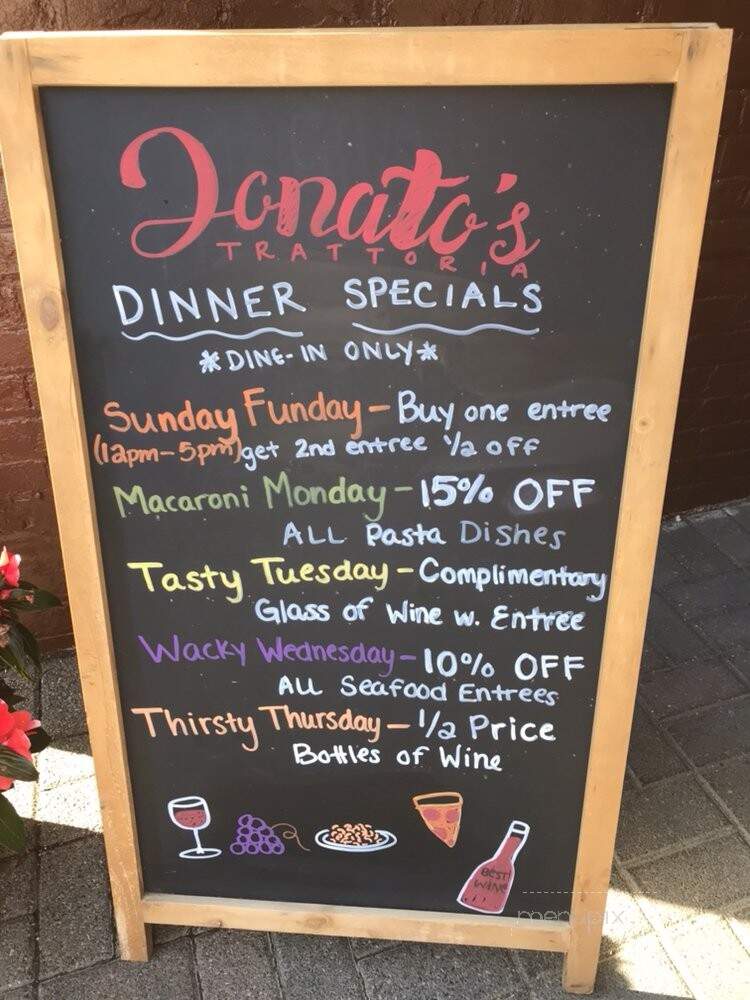 Donato's
TRATTORIA
DINNER SPECIALS
*DINE-IN ONLY*
Sunday Funday - Buy one entree
(12pm-5pm) get 2nd entree 1/2 off
Macaroni Monday - 15% OFF
ALL Pasta Dishes
Tasty Tuesday - Complimentary
Glass of Wine w. Entree
Wacky Wednesday - 10% OFF
All Seafood Entrees
Thirsty Thursday - 1/2 Price
Bottles of Wine
BEST
WINE
menupix